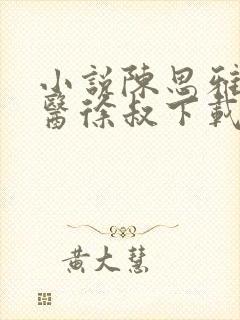 小說陳思雅
醫徐叔下載
黃大慧